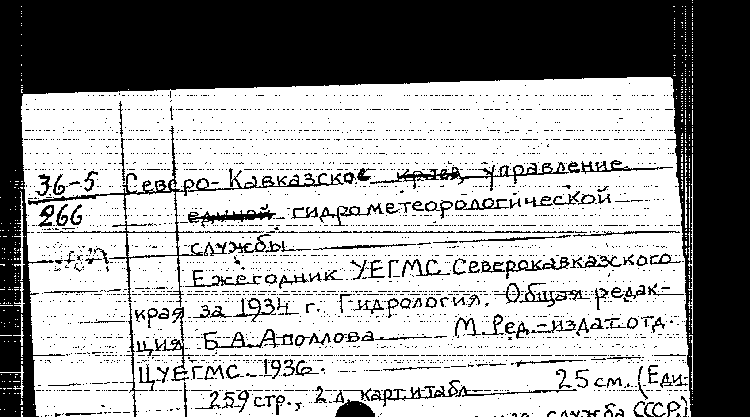 36-5 Северо-Кавказское краев. управление
266 единой гидрометеорологической
службы
Ежегодник УЕГМС Северокавказского
края за 1934 г. Гидрология. Общая редак-
ция Б.А. Аполлова М. Ред.-издат. отд.
ЦУЕГМС. 1936.
259 стр., 2 л. карт. и табл. 25 см. (Еди-
служба СССР)